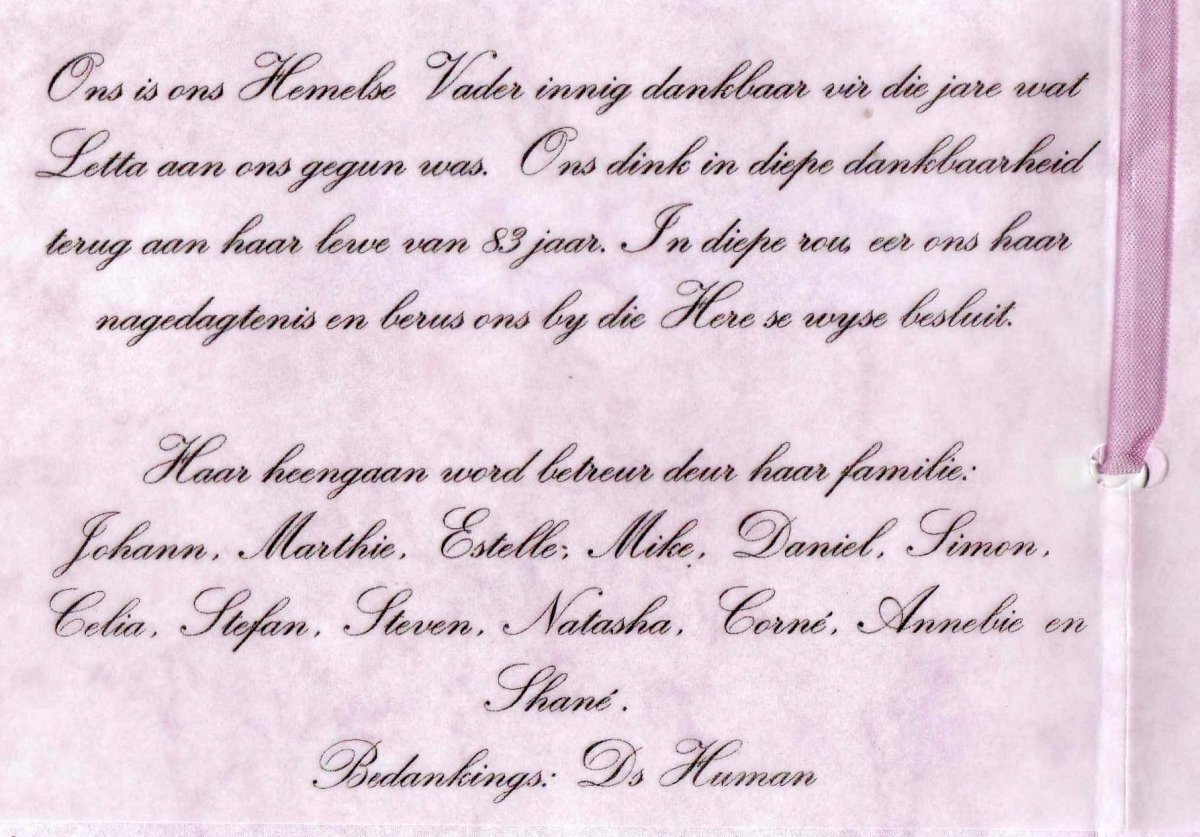 Ons is ons Hemelse Vader innig dankbaar vir die jare wat
Letta aan ons gegun was. Ons dink in diepe dankbaarheid
terug aan haar lewe van 83 jaar. In diepe rou, eer ons haar
nagedagtenis en berus ons by die Here se wyse besluit.
Haar heengaan word betreur deur haar familie:
Johann, Marthie, Estelle; Mike, Daniel, Simon,
Celia, Stefan, Steven, Natasha, Corné, Annebie en
Shané.
Bedankings: Ds Human